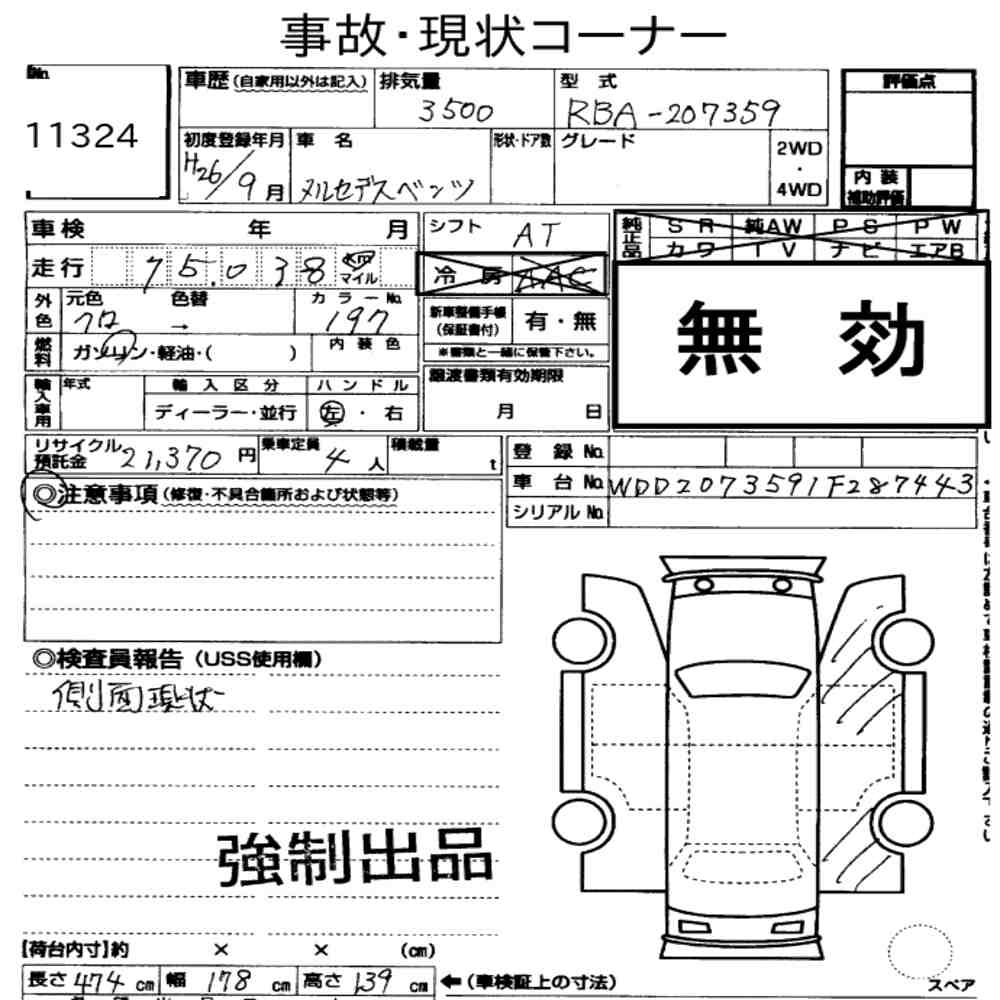 事故・現状コーナー
No.
11324
車歴 (自家用以外は記入) 排気量 3500
型式 RBA-207359
評価点
初度登録年月 H26/9月
車名 メルセデスベンツ
形状・ドア数 グレード
2WD
・
4WD
内装
補助評価
車検 年 月
シフト AT
純正品 SR 純AW PS PW
カワ TV ナビ エアB
走行 75.038 km マイル
冷房 AAC
無効
外色 元色 クロ 色替 → カラーNo. 197
新車整備手帳
(保証書付)
有・無
燃料 ガソリン・軽油・( ) 内装色
※書類と一緒に保管下さい。
輸入車用 年式 輸入区分 ハンドル
ディーラー・並行 左・右
譲渡書類有効期限
月 日
リサイクル
預託金 21,370円 乗車定員 4人 積載量 t
登録No.
車台No. WDD2073591F287443
シリアルNo.
◎注意事項 (修復・不具合箇所および状態等)
◎検査員報告 (USS使用欄)
側面現状
強制出品
【荷台内寸】約 × × (cm)
長さ 474 cm 幅 178 cm 高さ 139 cm ←(車検証上の寸法)
スペア